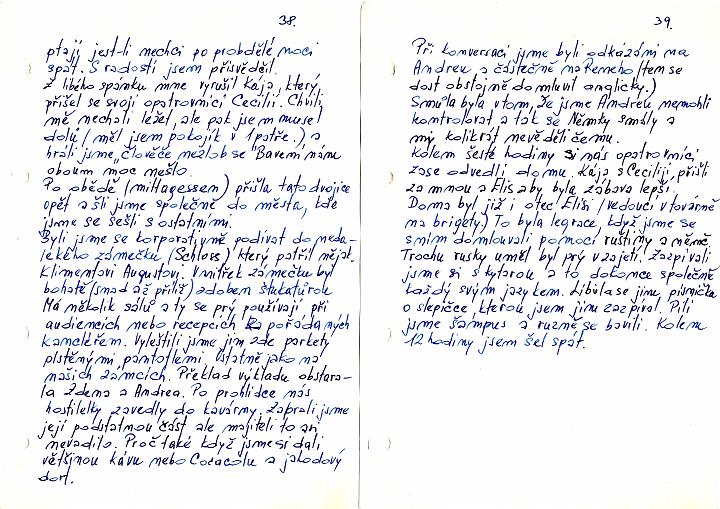 38.
ptají jest-li nechci po probdělé noci
spát. S radostí jsem přisvěděil.
Z libého spánku mne vyrušil Kája, který
přišel se svojí opatrovnicí Cecilií. Chvíli
mě nechali ležet, ale pak jsem musel
dolů (měl jsem pokojík v 1 patře.) a
hráli jsme "Člověče nezlob se". Bavení nám
oboum moc nešlo.
Po obědě (mittagessem) přišla tato dvojice
opět a šli jsme společně do města, kde
jsme se sešli s ostatními.
Byli jsme se korporativně podívat do neda-
lekého zámečku (Schloss) který patřil nějak.
Klimentovi Augustovi. Vnitřek zámečku byl
bohatě (snad až příliš) zdoben štukatúrou
Má několik sálů a ty se prý používají při
audiencích nebo recepcích pořádaných
kancléřem. Vyleštili jsme jim zde parkety
plstěnými pantoflemi. Ostatně jako na
našich zámcích. Překlad výkladu obstara-
la Zdena a Andrea. Po prohlídce nás
hostitelky zavedly do kavárny. Zabrali jsme
její podstatnou část ale majiteli to ani
nevadilo. Proč také když jsme si dali
většinou kávu nebo Cocacolu a jahodový
dort.
39.
Při konversaci jsme byli odkázáni na
Andreu a částečně na Remeho (ten se
dost obstojně domluví anglicky.)
Smůla byla v tom, že jsme Andreu nemohli
kontrolovat a tak se Němky smály a
my kolikrát nevěděli čemu.
Kolem šesté hodiny si nás opatrovníci
zase odvedli domu. Kája s Cecilií, přišli
za mnou a Elis aby byla zábava lepší.
Doma byl již i otec Elisi (vedoucí v továrně
na brigety.) To byla legrace, když jsme se
s ním domlouvali pomocí ruštiny a němč.
Trochu rusky uměl byl prý v zajetí. Zazpívali
jsme si s kytarou a to dokonce společně
každý svým jazykem. Líbila se jim písnička
o slepičce, kterou jsem jim zazpíval. Pili
jsme šampus a ruzně se bavili. Kolem
12 hodiny jsem šel spát.